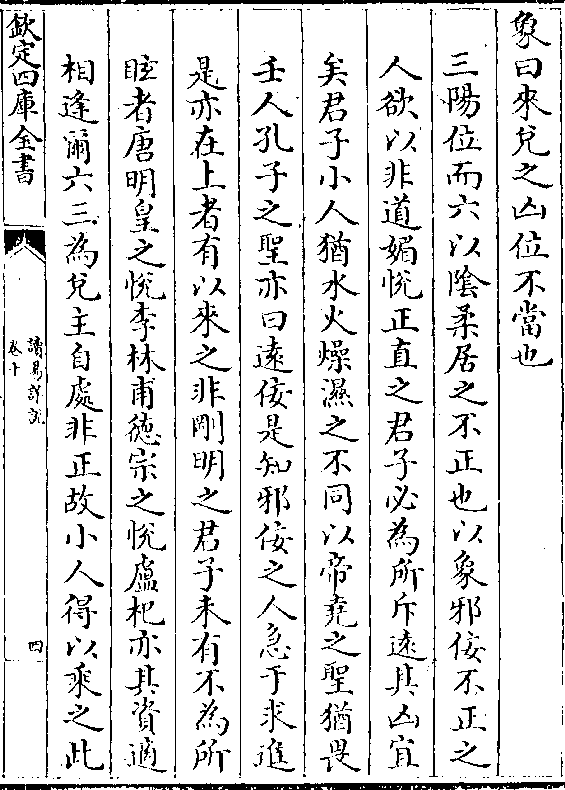 象曰來兌之凶位不當也
三陽位而六以陰柔居之不正也以象邪佞不正之
人欲以非道媚悅正直之君子必為所斥遠其凶宜
矣君子小人猶水火燥濕之不同以帝堯之聖猶畏
壬人孔子之聖亦曰遠佞是知邪佞之人急于求進
是亦在上者有以來之非剛明之君子未有不為所
眩者唐明皇之悅李林甫德宗之悅盧杞亦其資適
相逢爾六三為兌主自處非正故小人得以乘之此
欽定四庫全書
讀易詳說
卷十
四